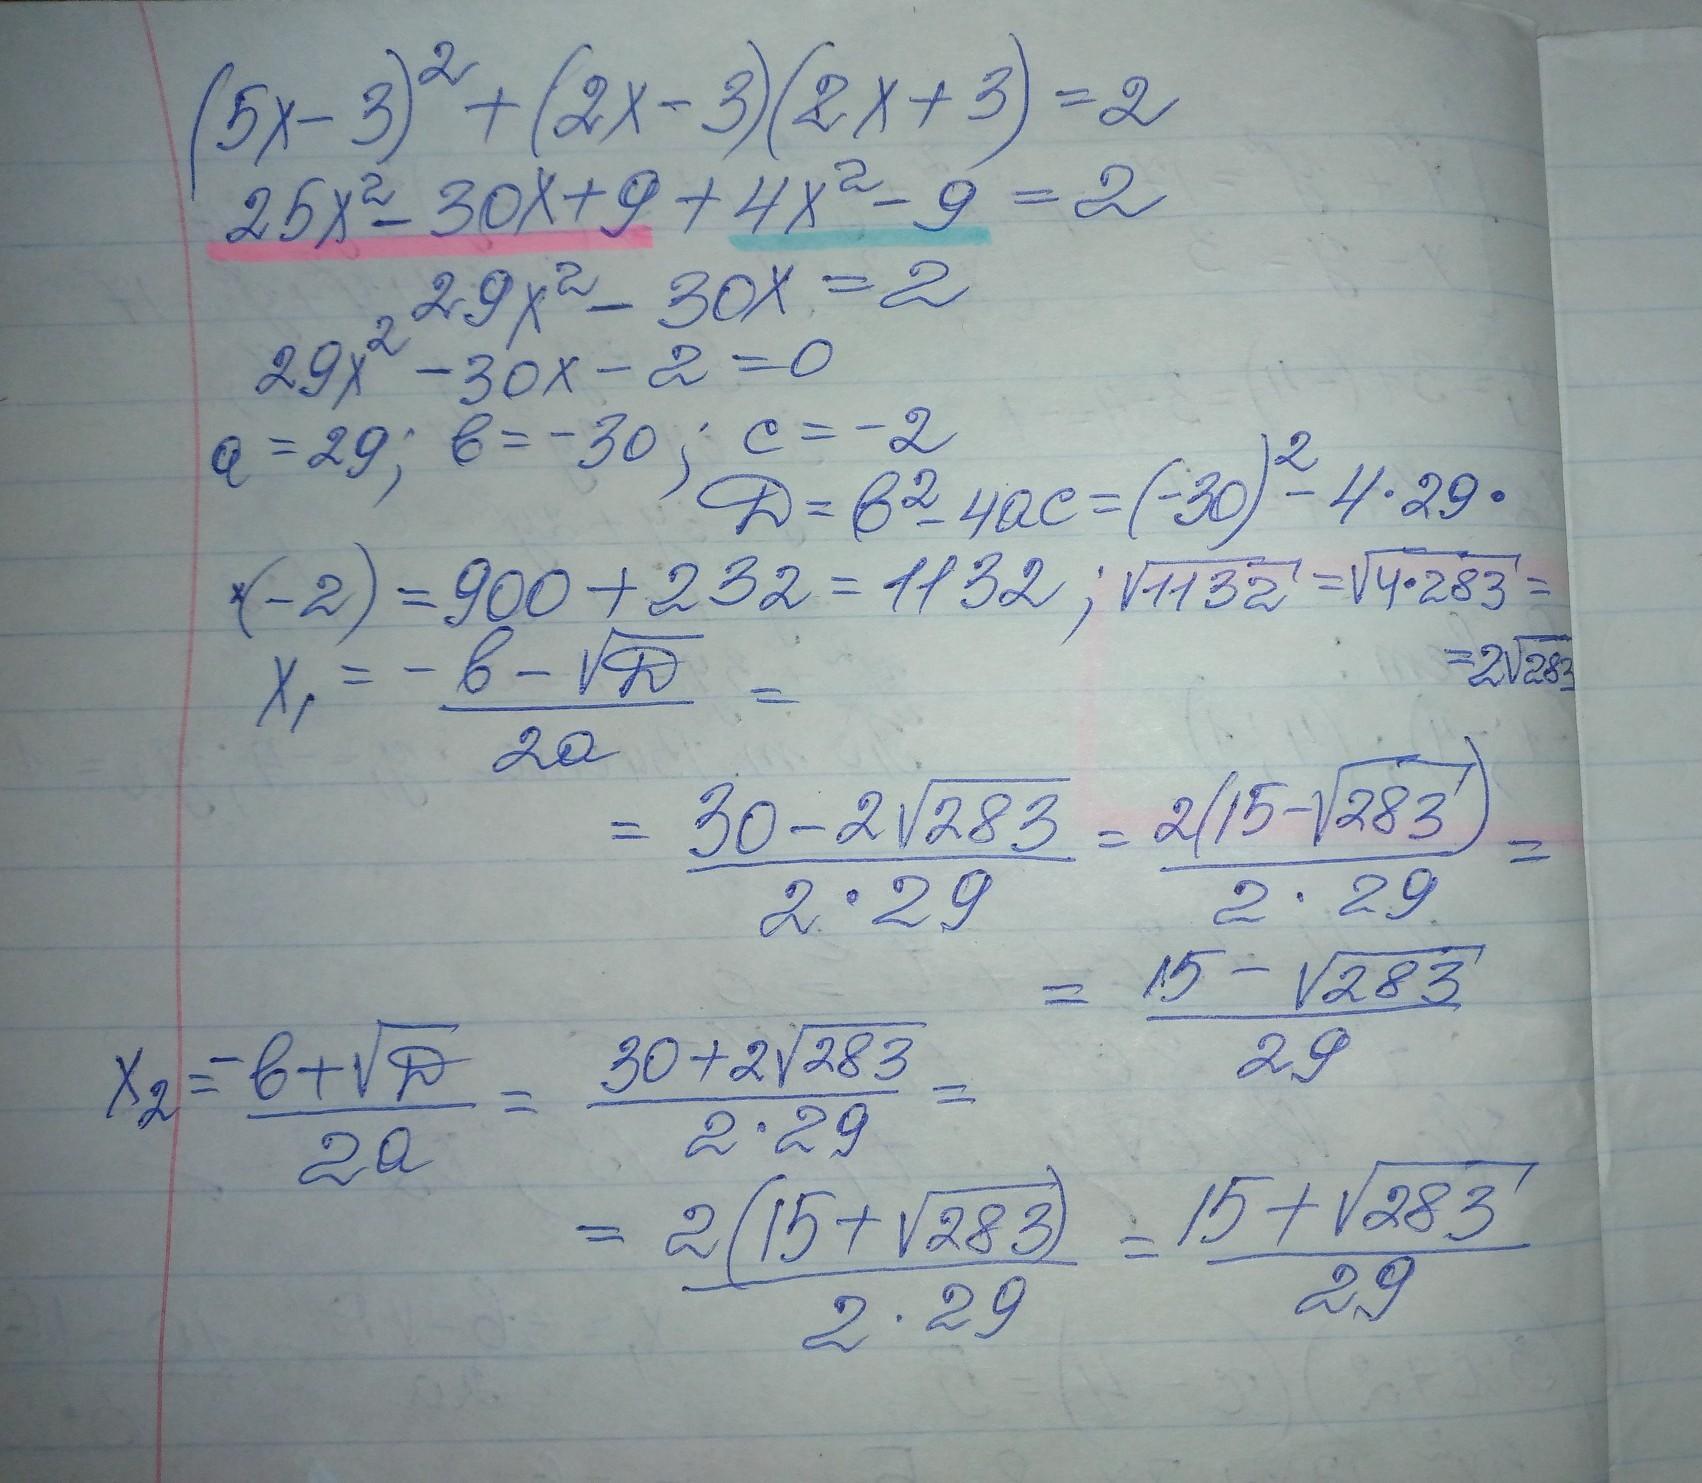 (5x-3)² + (2x-3)(2x+3) = 2
25x² - 30x + 9 + 4x² - 9 = 2
29x² - 30x = 2
29x² - 30x - 2 = 0
a = 29; в = -30; c = -2
Д = в² - 4ac = (-30)² - 4·29·
·(-2) = 900 + 232 = 1132; √1132 = √4·283 =
= 2√283
x₁ = (-в - √Д)/2a =
= (30 - 2√283)/(2·29) = 2(15 - √283)/(2·29) =
= (15 - √283)/29
x₂ = (-в + √Д)/2a = (30 + 2√283)/(2·29) =
= 2(15 + √283)/(2·29) = (15 + √283)/29